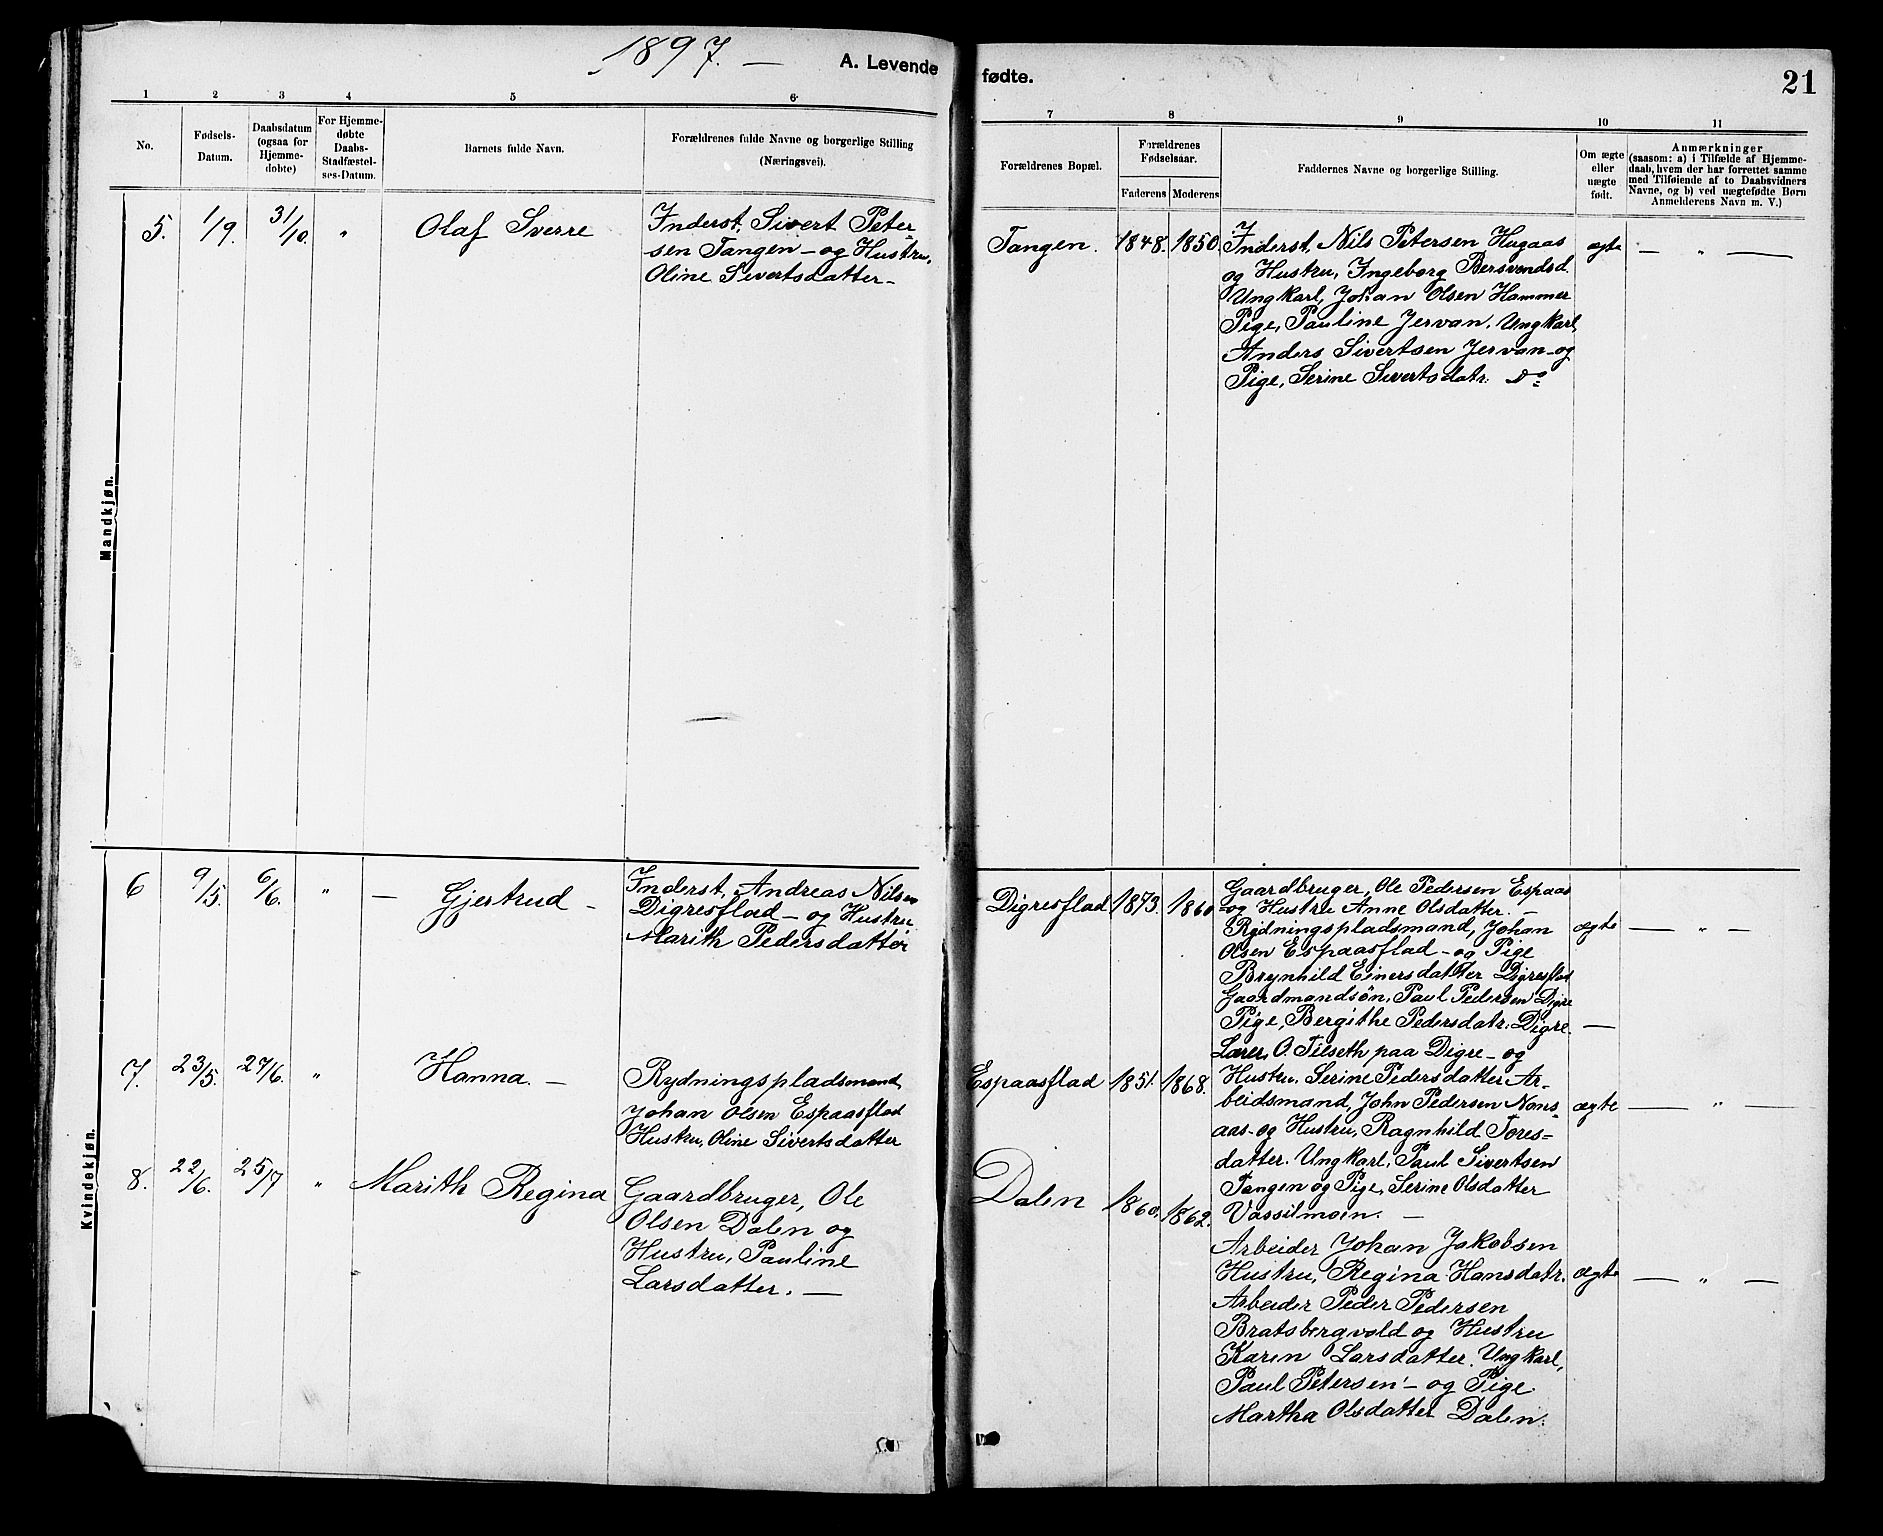 1897. —
A. Levende
fødte.
21
1
2
3
4
5
6
7
8
9
10
11
No.
Fødsels-
Datum.
Daabsdatum
(ogsaa for
Hjemme-
døbte)
For Hjemme-
døbte
Daabs-
Stadfæstel-
ses-Datum.
Barnets fulde Navn.
Forældrenes fulde Navne og borgerlige Stilling
(Næringsvei).
Forældrenes Bopæl.
Forældrenes
Fødselsaar.
Faderens
Moderens
Faddernes Navne og borgerlige Stilling.
Om ægte
eller
uægte
født.
Anmærkninger
(saasom: a) i Tilfælde af Hjemme-
daab, hvem der har forrettet samme
med Tilføiende af to Daabsvidners
Navne, og b) ved uægtefødte Børn
Anmelderens Navn m. V.)
Mandkjøn.
5.
1/9.
31/10.
"
Olaf Sverre
Inderst, Sivert Peter-
sen Tangen — og Hustru,
Oline Sivertsdatter —
Tangen.
1848.
1850.
Inderst, Nils Petersen Hugaas
og Hustru, Ingeborg Bersvendsd.
Ungkarl, Johan Olsen Hammer
Pige, Pauline Jervan. Ungkarl,
Anders Sivertsen Jervan — og
Pige, Serine Sivertsdatr. Do
ægte
— " —
Kvindekjøn.
6
9/5.
6/6.
"
— Gjertrud —
Inderst, Andreas Nilsen
Digresflad — og Hustru
Marith Pedersdatter
Digresflad
1873.
1860
Gaardbruger, Ole Pedersen Espaas
og Hustru Anne Olsdatter. —
Rydningspladsmand, Johan
Olsen Espaasflad — og Pige
Brynhild Einersdatter Digresflad
Gaardmandsøn, Paul Pedersen Digre
Pige, Bergithe Pedersdatr. Digre —
ægte
— " —
7.
23/5.
27/6.
"
Hanna. —
Rydningspladsmand
Johan Olsen Espaasflad
Hustru, Oline Sivertsdatter
Espaasflad
1851.
1868.
Lærer, O. Tilseth paa Digre — og
Hustru, Serine Pedersdatter Ar-
beidsmand, John Pedersen Nons-
aas — og Hustru, Ragnhild Tores-
datter. Ungkarl, Paul Sivertsen
Tangen og Pige, Serine Olsdatter
Vassilmoin. —
ægte
— " —
8.
22/6.
25/7
"
Marith Regina
Gaardbruger, Ole
Olsen Dalen og
Hustru, Pauline
Larsdatter. —
Dalen
1860.
1862.
Arbeider Johan Jakobsen
Hustru, Regina Hansdatr.
Arbeider Peder Pedersen
Bratsbergvold og Hustru
Karen Larsdatter. Ungkarl,
Paul Petersen — og Pige
Martha Olsdatter Dalen.
ægte
— " —